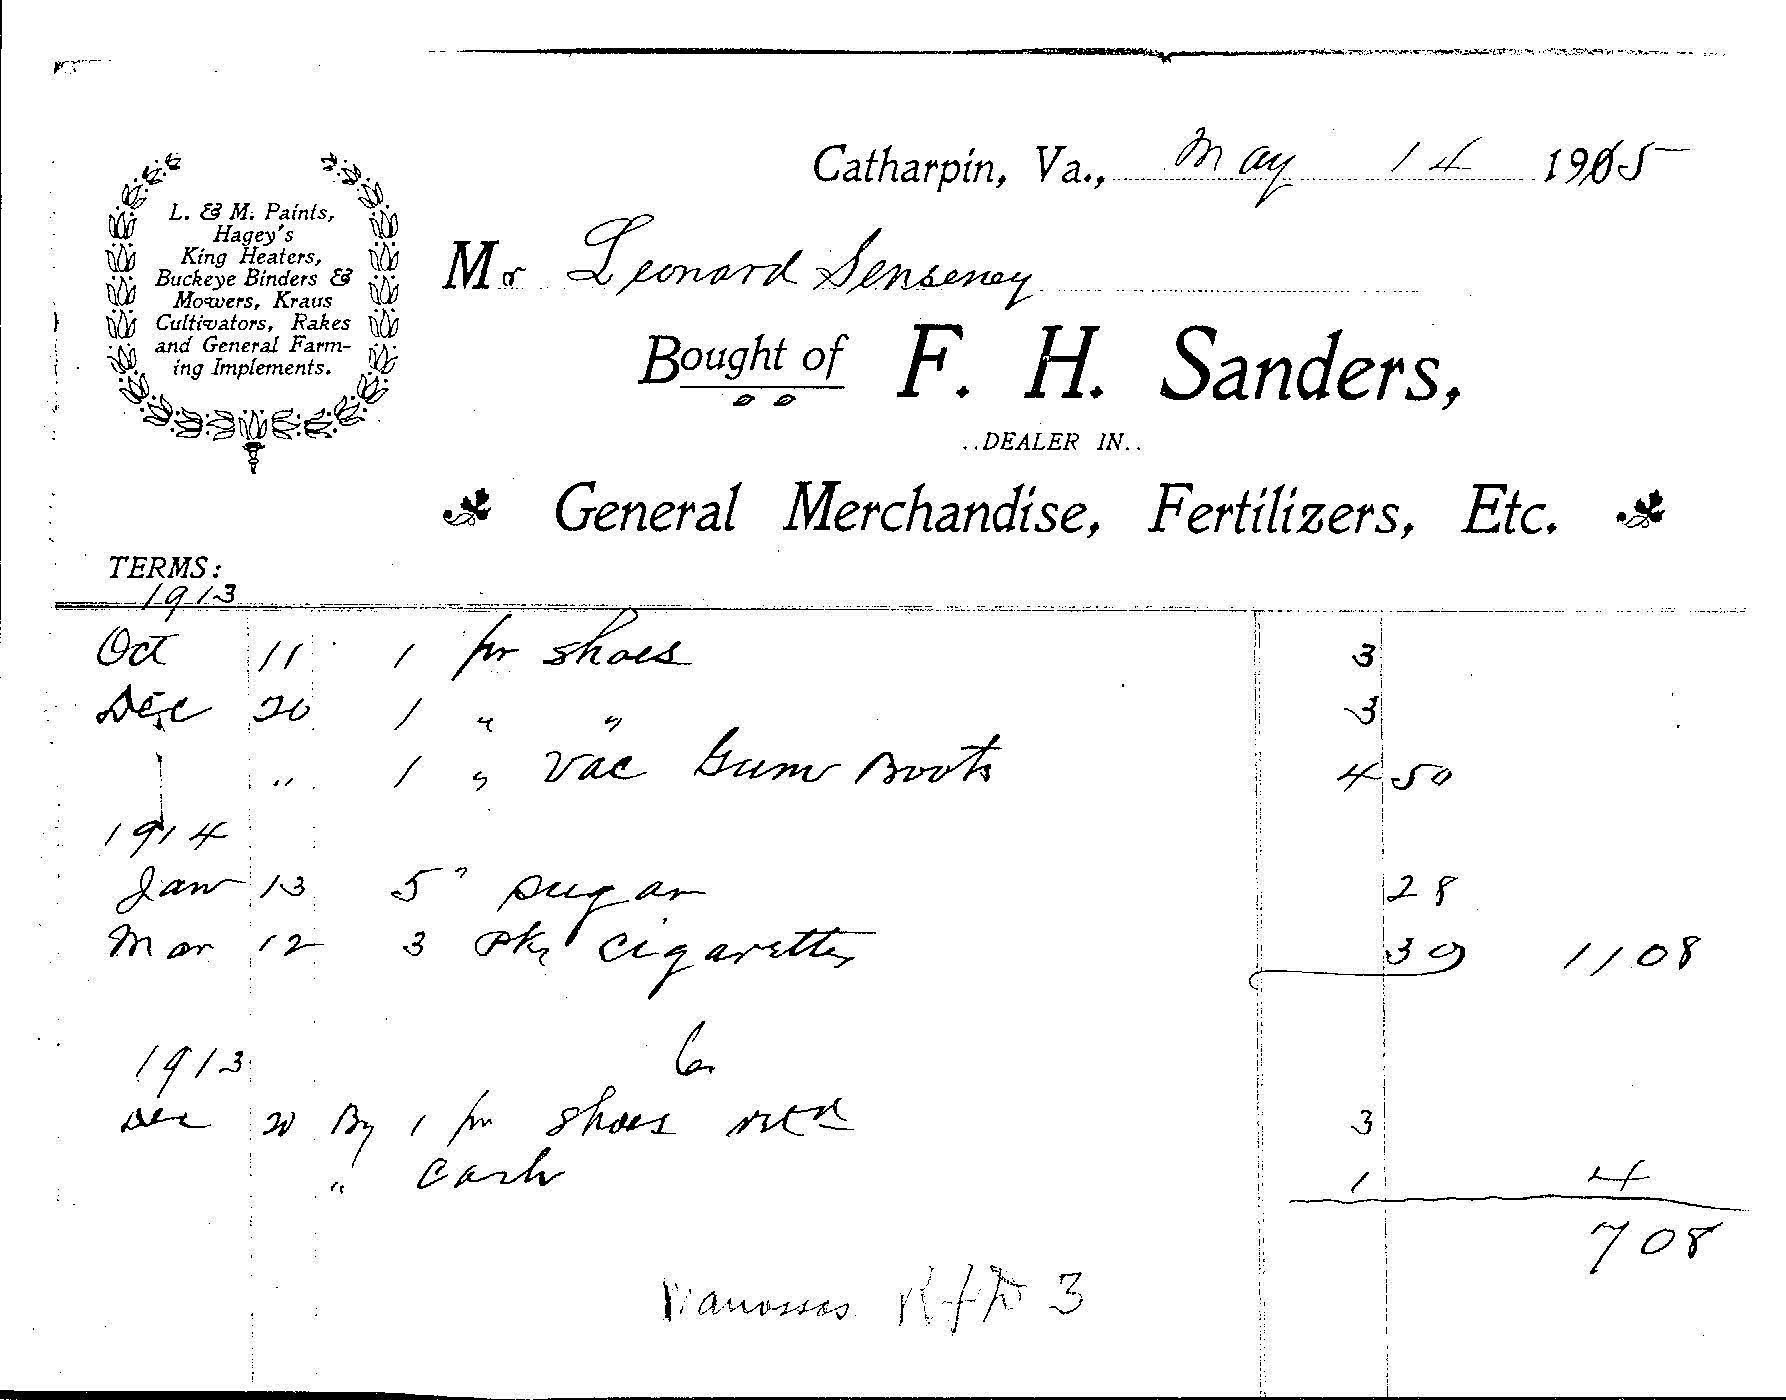 Catharpin, Va., May 14 1915
L. & M. Paints,
Hagey's
King Heaters,
Buckeye Binders &
Mowers, Kraus
Cultivators, Rakes
and General Farm-
ing Implements.
Mr Leonard Senseney
Bought of F. H. Sanders,
..DEALER IN..
General Merchandise, Fertilizers, Etc.
TERMS:
1913
Oct 11 1 pr shoes 3
Dec 20 1 " " 3
" 1 " Vac Gum Boots 4 50
1914
Jan 13 5 " sugar 28
Mar 12 3 Pks Cigarettes 30 11 08
1913 Cr
Dec 20 By 1 pr shoes retd 3
" Cash 1 4
7 08
Manassas RFD 3